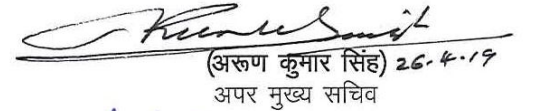 (अरूण कुमार सिंह) 26.4.19
अपर मुख्य सचिव